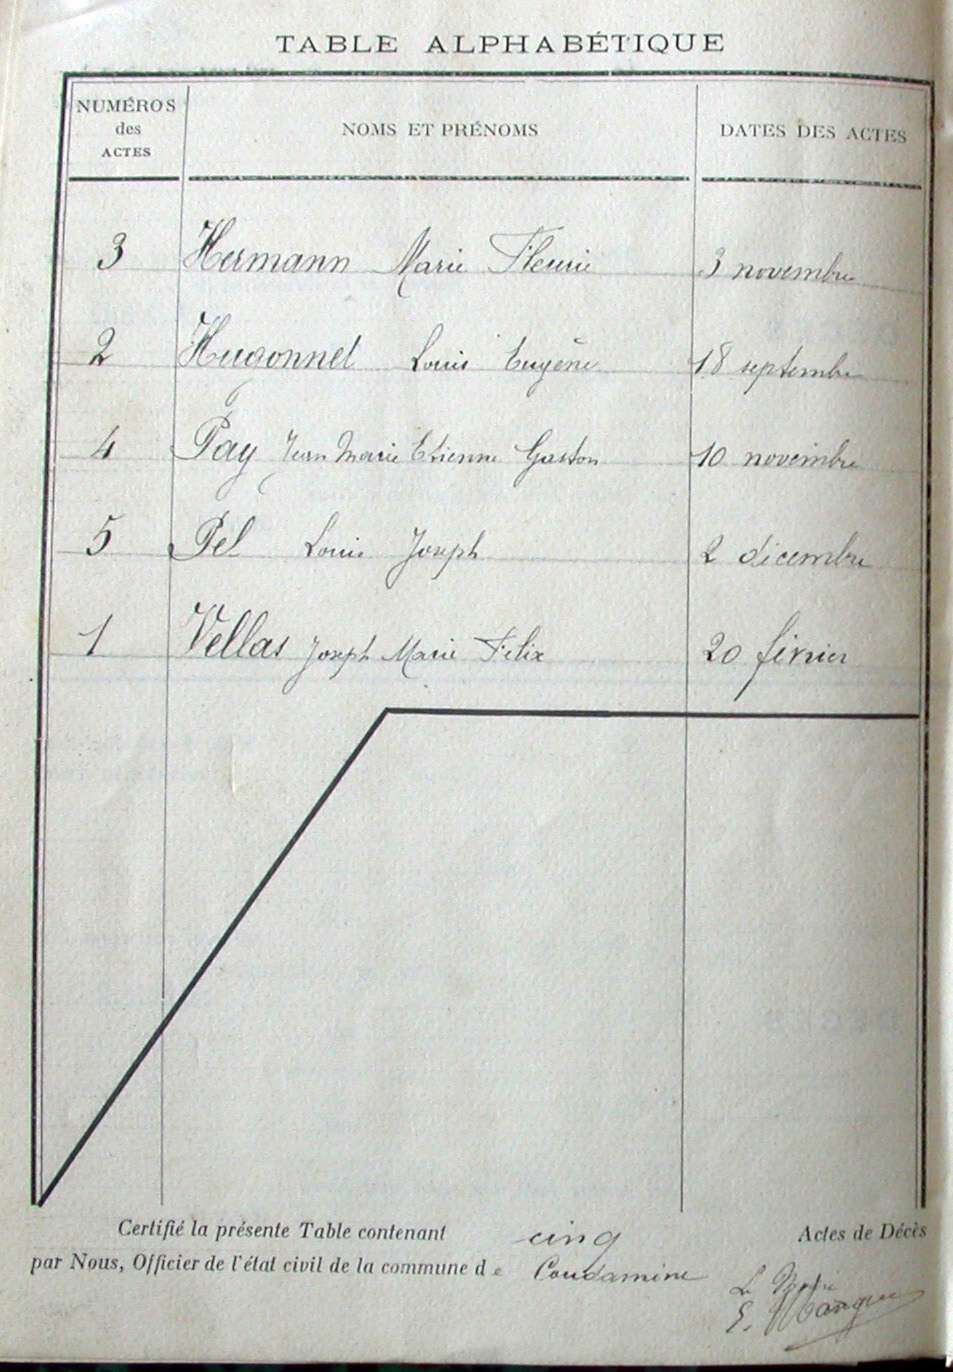 TABLE ALPHABÉTIQUE
NUMÉROS des ACTES NOMS ET PRÉNOMS DATES DES ACTES
3 Hermann Marie Fleurie 3 novembre
2 Hugonnet Louis Eugène 18 septembre
4 Pay Jean Marie Etienne Gaston 10 novembre
5 Pel Louis Joseph 2 décembre
1 Vellas Joseph Marie Felix 20 février
Certifié la présente Table contenant cinq Actes de Décès
par Nous, Officier de l'état civil de la commune de Condamine
Le Maire
E.